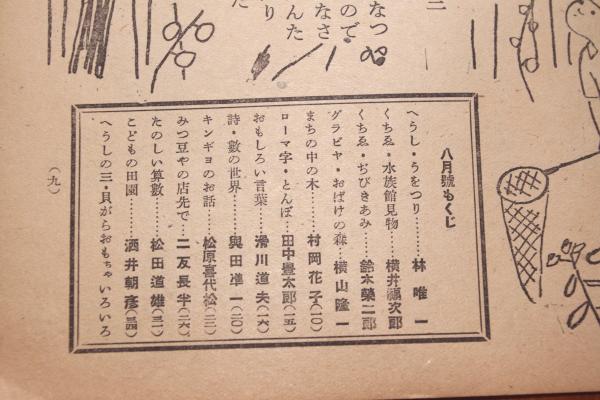 三
なつ
ので
なさ
んた
り
た
八月號もくじ
へうし・うをつり……林唯一
くちゑ・水族館見物……橫井福次郎
くちゑ・ぢびきあみ……鈴木榮二郎
グラビヤ・おばけの森…橫山隆一
まちの中の木………村岡花子(一〇)
ローマ字・とんぼ…田中豊太郎(一五)
おもしろい言葉……滑川道夫(一六)
詩・數の世界………與田凖一(二〇)
キンギヨのお話……松原喜代松(二二)
みつ豆やの店先で…二反長半(二六)
たのしい算數………松田道雄(三一)
こどもの田園………酒井朝彥(三四)
へうしの三・貝がらおもちやいろいろ
(九)